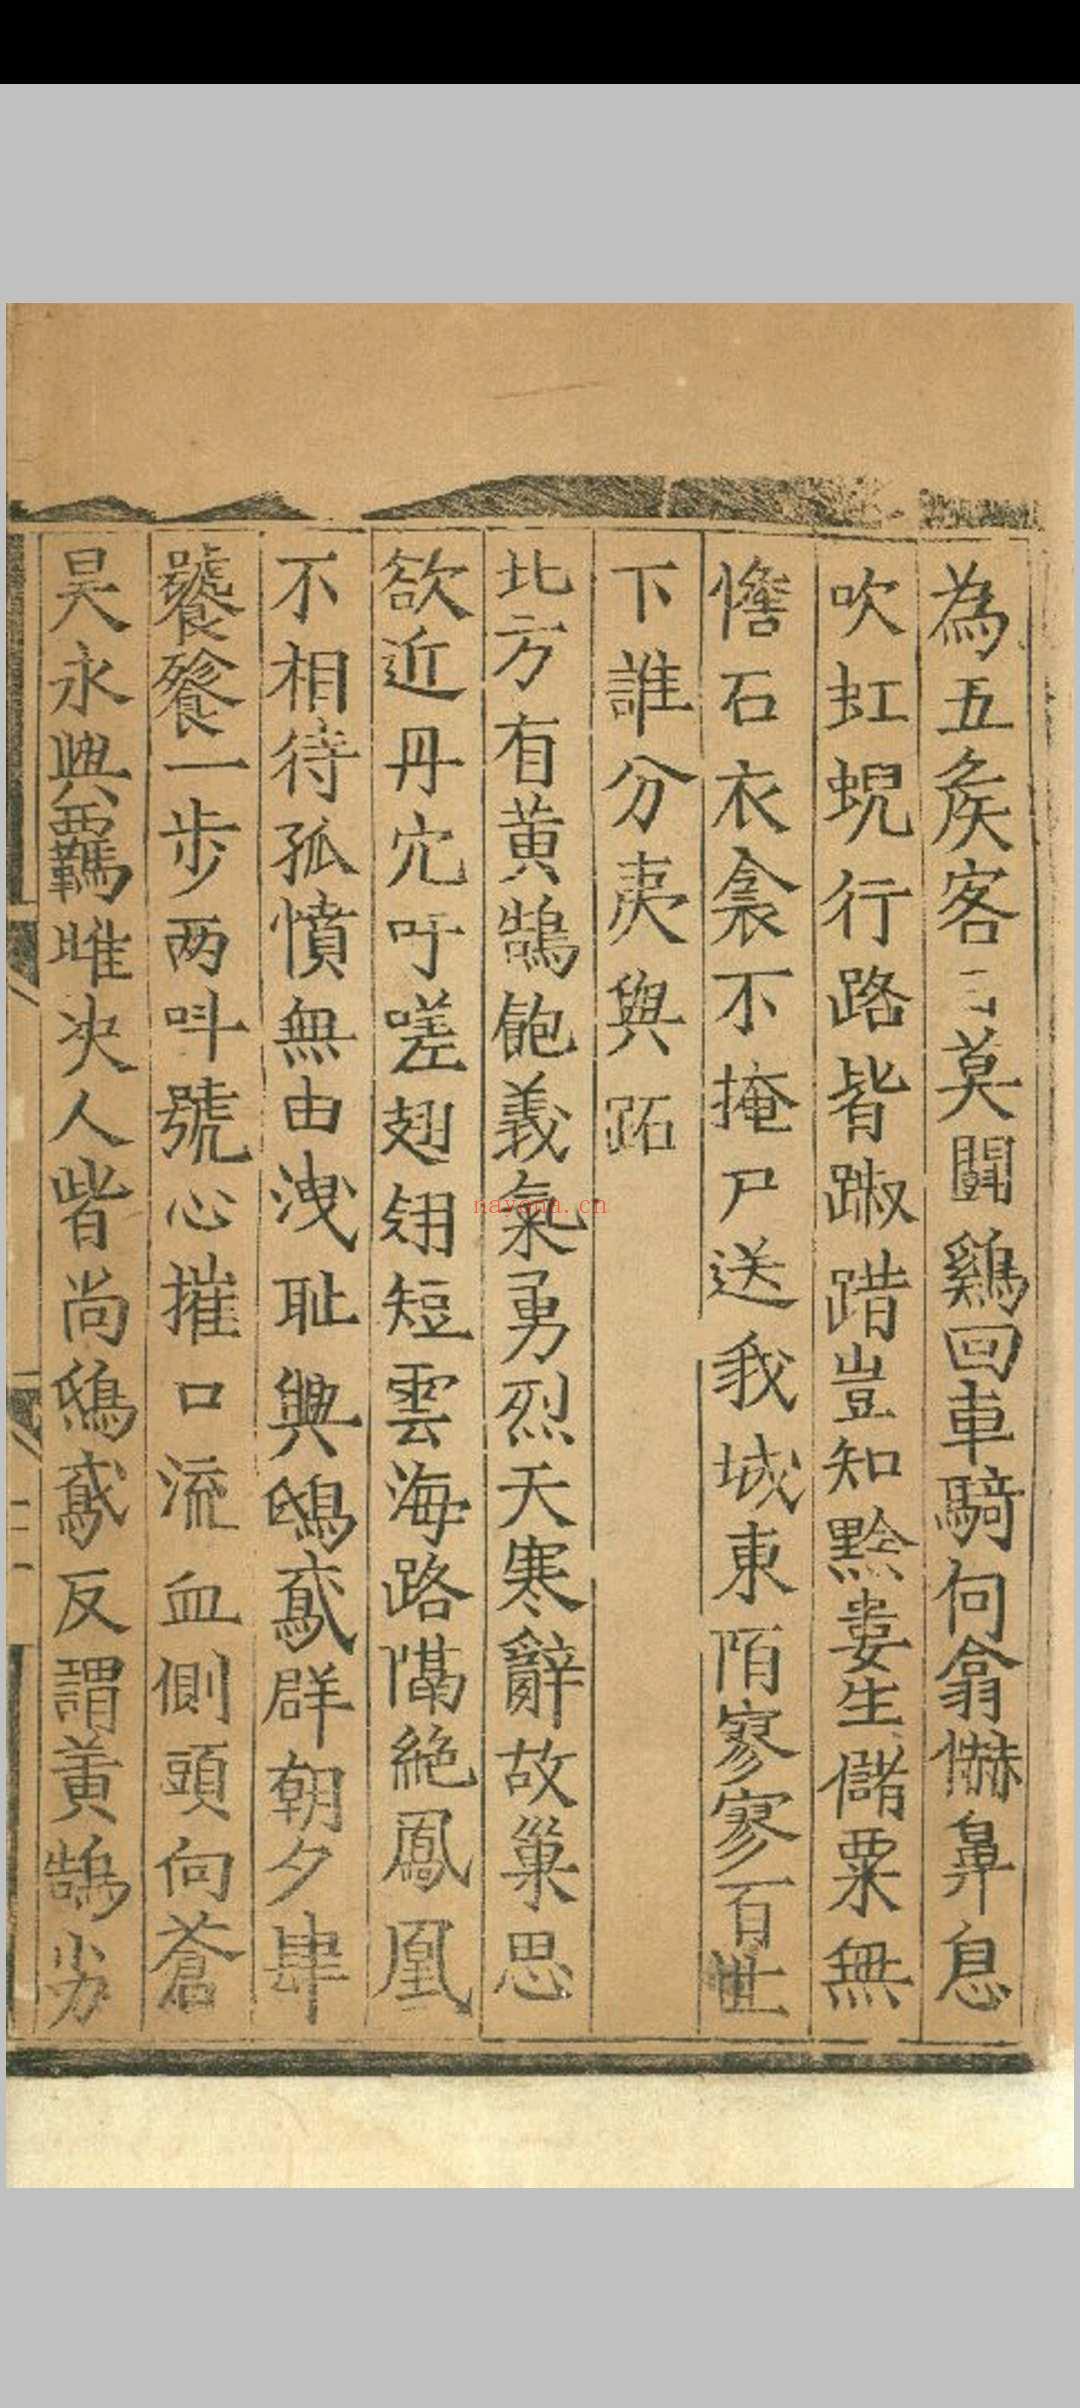 為五侯客日莫鬭鷄回車騎何翕愶鼻息
吹虹蜺行路皆踧踖豈知黔婁生儲粟無
儋石衣衾不掩尸送我城東陌寥寥百世
下誰分夷與跖
北方有黄鵠飽義氣勇烈天寒辭故巢思
欲近丹穴吁嗟翅翎短雲海路隔絶鳳凰
不相待孤憤無由洩耻與鴟鳶群朝夕肆
饕餮一步两呌號心摧口流血側頭向蒼
昊永與羈雌决人皆尚鴟鳶反謂黄鵠劣
nayona.cn